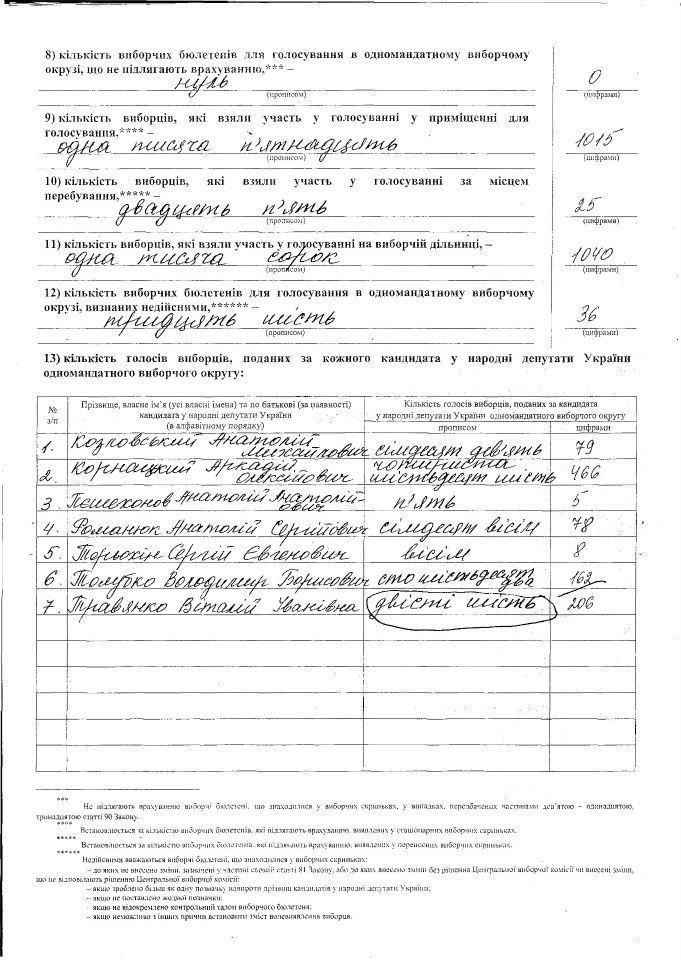 8) кількість виборчих бюлетенів для голосування в одномандатному виборчому
окрузі, що не підлягають врахуванню,*** –
нуль 0
(прописом) (цифрами)
9) кількість виборців, які взяли участь у голосуванні у приміщенні для
голосування,**** –
одна тисяча п'ятнадцять 1015
(прописом) (цифрами)
10) кількість виборців, які взяли участь у голосуванні за місцем
перебування,***** –
двадцять п'ять 25
(прописом) (цифрами)
11) кількість виборців, які взяли участь у голосуванні на виборчій дільниці, –
одна тисяча сорок 1040
(прописом) (цифрами)
12) кількість виборчих бюлетенів для голосування в одномандатному виборчому
окрузі, визнаних недійсними,****** –
тридцять шість 36
(прописом) (цифрами)
13) кількість голосів виборців, поданих за кожного кандидата у народні депутати України
одномандатного виборчого округу:
№ з/п
Прізвище, власне ім'я (усі власні імена) та по батькові (за наявності)
кандидата у народні депутати України
(в алфавітному порядку)
Кількість голосів виборців, поданих за кандидата
у народні депутати України одномандатного виборчого округу
прописом цифрами
1. Козловський Анатолій Михайлович сімдесят дев'ять 79
2. Корнацкий Аркадій Олексійович чотириста шістьдесят шість 466
3. Пєшехонов Анатолій Анатолійович п'ять 5
4. Романюк Анатолій Сергійович сімдесят вісім 78
5. Терьохін Сергій Євгенович вісім 8
6. Толубко Володимир Борисович сто шістьдесят два 162
7. Травянко Віталій Іванівна двісті шість 206
***
Не підлягають врахуванню виборчі бюлетені, що знаходилися у виборчих скриньках, у випадках, передбачених частинами дев'ятою – одинадцятою,
тринадцятою статті 90 Закону.
****
Встановлюється за кількістю виборчих бюлетенів, які підлягають врахуванню, виявлених у стаціонарних виборчих скриньках.
*****
Встановлюється за кількістю виборчих бюлетенів, які підлягають врахуванню, виявлених у переносних виборчих скриньках.
******
Недійсними вважаються виборчі бюлетені, що знаходилися у виборчих скриньках:
– до яких не внесено зміни, зазначені у частині сьомій статті 81 Закону, або до яких внесено зміни без рішення Центральної виборчої комісії чи внесені зміни,
що не відповідають рішенню Центральної виборчої комісії;
– якщо зроблено більш як одну позначку навпроти прізвищ кандидатів у народні депутати України;
– якщо не поставлено жодної позначки;
– якщо не відокремлено контрольний талон виборчого бюлетеня;
– якщо неможливо з інших причин встановити зміст волевиявлення виборця.